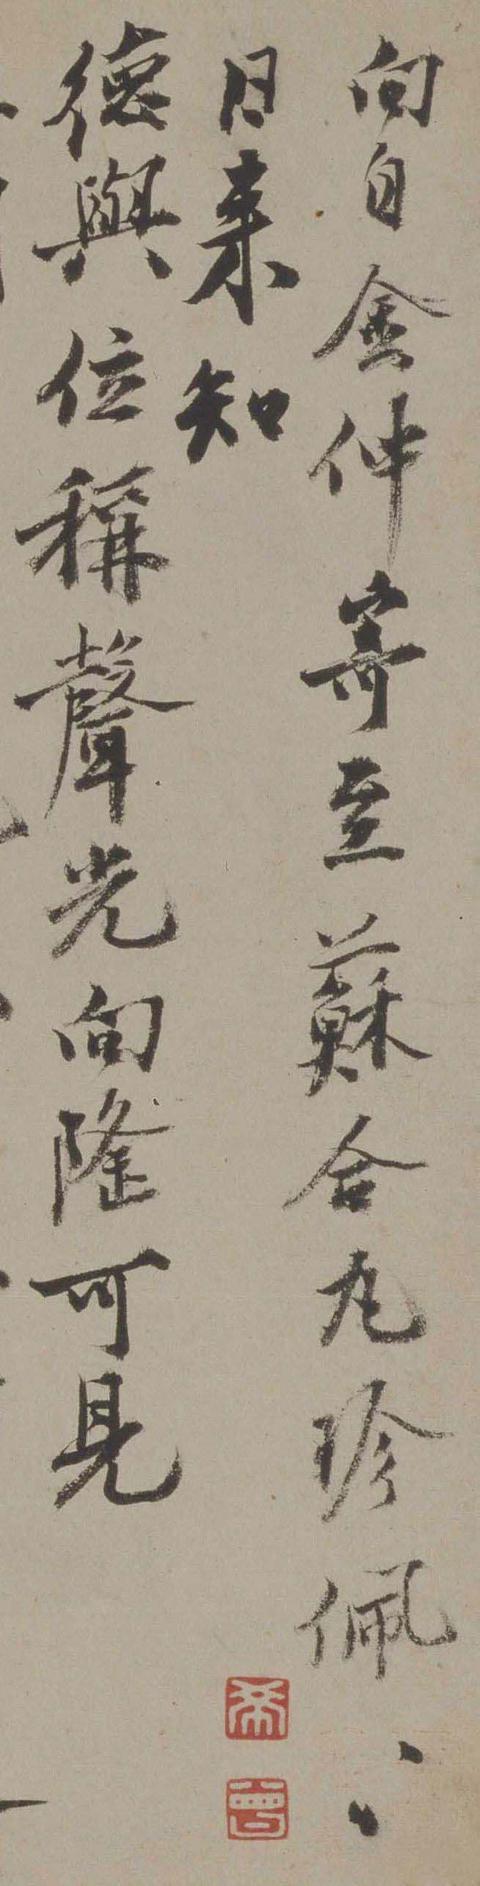 向自金仲寄至蘇合丸珍佩々
日来知
德與位稱聲光向隆可見
希
曾